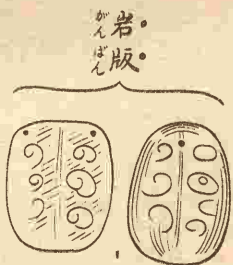 岩版
がんばん